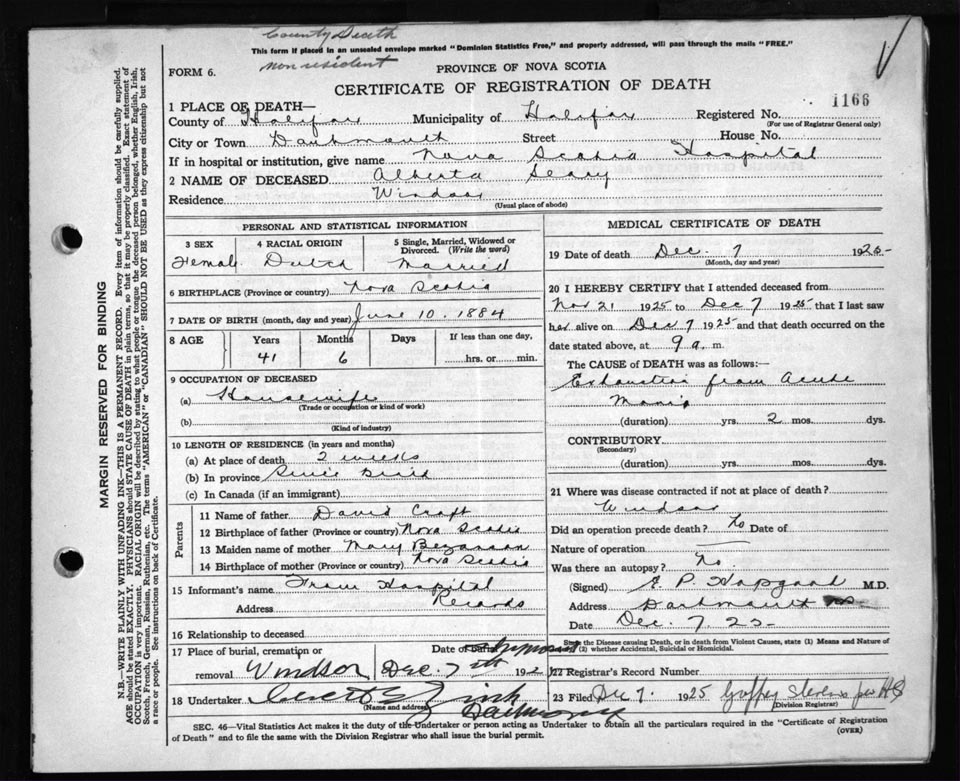 County Death
This form if placed in an unsealed envelope marked "Dominion Statistics Free," and properly addressed, will pass through the mails "FREE."
non resident
FORM 6.
PROVINCE OF NOVA SCOTIA
CERTIFICATE OF REGISTRATION OF DEATH
1166
1 PLACE OF DEATH—
County of Halifax Municipality of Halifax Registered No.
(For use of Registrar General only)
City or Town Dartmouth Street House No.
If in hospital or institution, give name Nova Scotia Hospital
2 NAME OF DECEASED Alberta Seary
Residence Windsor
(Usual place of abode)
PERSONAL AND STATISTICAL INFORMATION
3 SEX 4 RACIAL ORIGIN 5 Single, Married, Widowed or Divorced. (Write the word)
Female Dutch Married
6 BIRTHPLACE (Province or country) Nova Scotia
7 DATE OF BIRTH (month, day and year) June 10. 1884
8 AGE Years Months Days If less than one day,
41 6 hrs. or min.
9 OCCUPATION OF DECEASED
(a) Housewife
(Trade or occupation or kind of work)
(b)
(Kind of industry)
10 LENGTH OF RESIDENCE (in years and months)
(a) At place of death 2 weeks
(b) In province Since Birth
(c) In Canada (if an immigrant)
Parents
11 Name of father David Craft
12 Birthplace of father (Province or country) Nova Scotia
13 Maiden name of mother Mary Bezanson
14 Birthplace of mother (Province or country) Nova Scotia
15 Informant's name From Hospital
Address Records
16 Relationship to deceased
17 Place of burial, cremation or removal Windsor Date of burial Dec. 7th 192
18 Undertaker Zink
(Name and address) Dartmouth
MEDICAL CERTIFICATE OF DEATH
19 Date of death Dec. 7 1925
(Month, day and year)
20 I HEREBY CERTIFY that I attended deceased from
Nov 21 1925 to Dec 7 1925 that I last saw
her alive on Dec 7 1925 and that death occurred on
date stated above, at 9 a. m.
The CAUSE OF DEATH was as follows:
Exhaustion from Acute
Mania
(duration) yrs. 2 mos. dys.
CONTRIBUTORY
(Secondary)
(duration) yrs. mos. dys.
21 Where was disease contracted if not at place of death?
Windsor
Did an operation precede death? No Date of
Nature of operation —
Was there an autopsy? No.
(Signed) E. P. Hopgood M.D.
Address Dartmouth
Date Dec. 7. 25
State the Disease causing Death, or in death from Violent Causes, state (1) Means and Nature of
(2) whether Accidental, Suicidal or Homicidal.
22 Registrar's Record Number
23 Filed Dec 7. 1925 Stevens per HS
(Division Registrar)
SEC. 46—Vital Statistics Act makes it the duty of the Undertaker or person acting as Undertaker to obtain all the particulars required in the "Certificate of Registration
of Death" and to file the same with the Division Registrar who shall issue the burial permit.
(OVER)
MARGIN RESERVED FOR BINDING
N.B.—WRITE PLAINLY WITH UNFADING INK—THIS IS A PERMANENT RECORD. Every item of information should be carefully supplied.
AGE should be stated EXACTLY. PHYSICIANS should STATE CAUSE OF DEATH in plain terms, so that it may be properly classified. Exact statement of
OCCUPATION is very important. RACIAL ORIGIN will be described by stating to what people or tongue the deceased person belonged, whether English, Irish,
Scotch, French, German, Russian, Ruthenian, etc. The terms "AMERICAN" or "CANADIAN" SHOULD NOT BE USED as they express citizenship but not
a race or people. See instructions on back of Certificate.